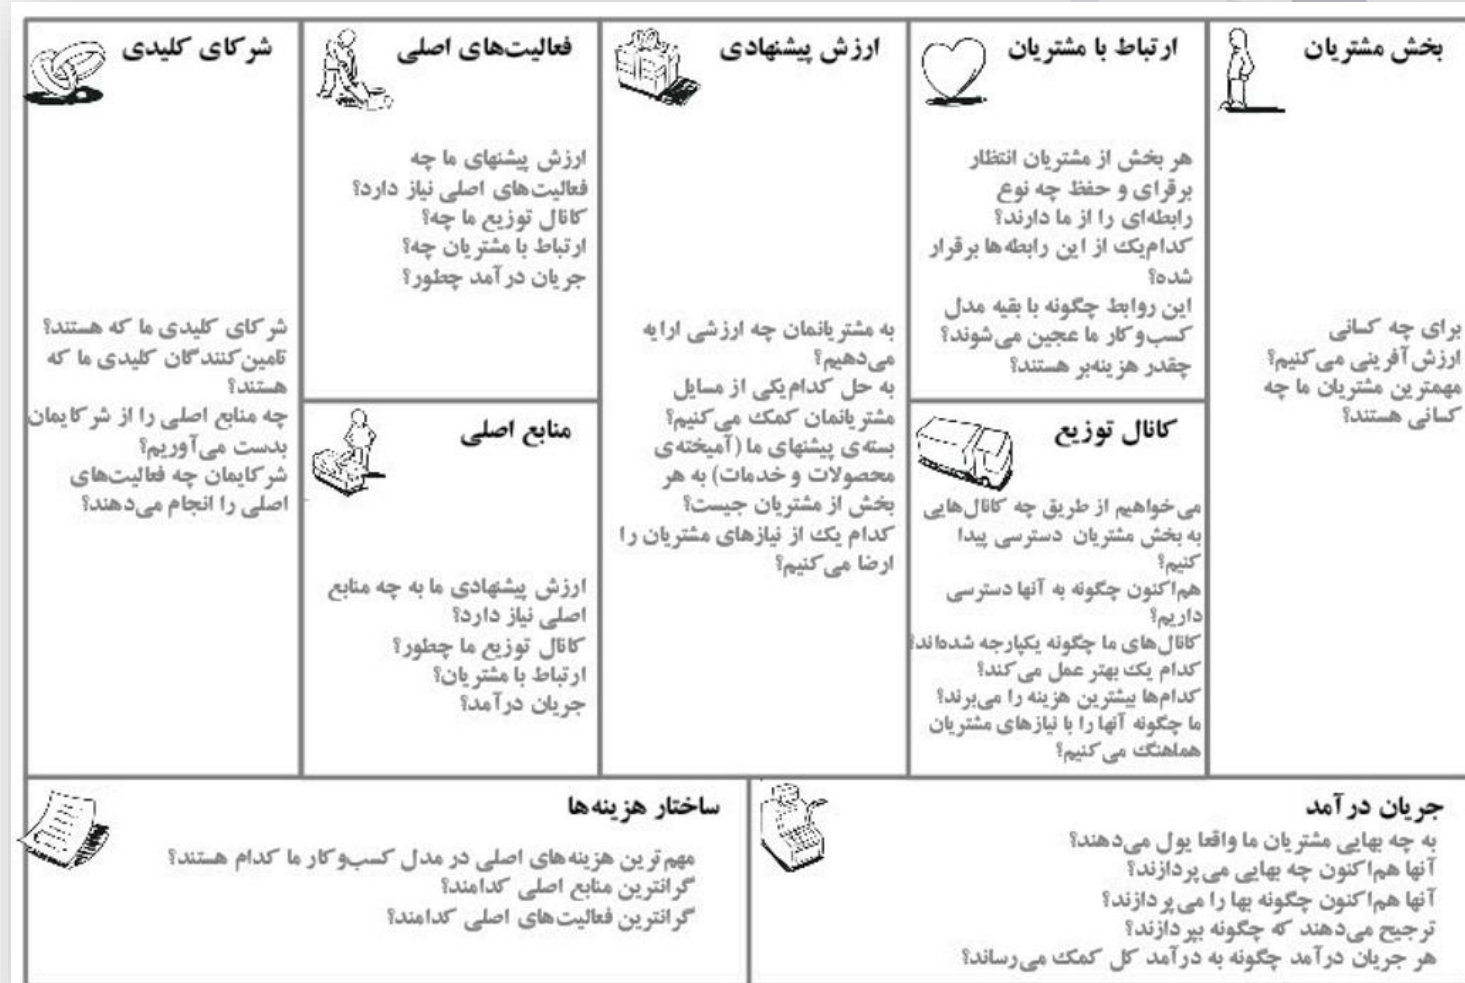 بخش مشتریان
برای چه کسانی
ارزش‌آفرینی می‌کنیم؟
مهمترین مشتریان ما چه
کسانی هستند؟
ارتباط با مشتریان
هر بخش از مشتریان انتظار
برقرای و حفظ چه نوع
رابطه‌ای را از ما دارند؟
کدام‌یک از این رابطه‌ها برقرار
شده؟
این روابط چگونه با بقیه مدل
کسب‌وکار ما عجین می‌شوند؟
چقدر هزینه‌بر هستند؟
کانال توزیع
می‌خواهیم از طریق چه کانال‌هایی
به بخش مشتریان دسترسی پیدا
کنیم؟
هم‌اکنون چگونه به آنها دسترسی
داریم؟
کانال‌های ما چگونه یکپارچه شده‌اند؟
کدام یک بهتر عمل می‌کند؟
کدام‌ها بیشترین هزینه را می‌برند؟
ما چگونه آنها را با نیازهای مشتریان
هماهنگ می‌کنیم؟
ارزش پیشنهادی
به مشتریانمان چه ارزشی ارایه
می‌دهیم؟
به حل کدام‌یکی از مسایل
مشتریانمان کمک می‌کنیم؟
بسته‌ی پیشنهای ما (آمیخته‌ی
محصولات و خدمات) به هر
بخش از مشتریان چیست؟
کدام یک از نیازهای مشتریان را
ارضا می‌کنیم؟
فعالیت‌های اصلی
ارزش پیشنهای ما چه
فعالیت‌های اصلی نیاز دارد؟
کانال توزیع ما چه؟
ارتباط با مشتریان چه؟
جریان درآمد چطور؟
منابع اصلی
ارزش پیشنهادی ما به چه منابع
اصلی نیاز دارد؟
کانال توزیع ما چطور؟
ارتباط با مشتریان؟
جریان درآمد؟
شرکای کلیدی
شرکای کلیدی ما که هستند؟
تامین‌کنندگان کلیدی ما که
هستند؟
چه منابع اصلی را از شرکایمان
بدست می‌آوریم؟
شرکایمان چه فعالیت‌های
اصلی را انجام می‌دهند؟
جریان درآمد
به چه بهایی مشتریان ما واقعا پول می‌دهند؟
آنها هم‌اکنون چه بهایی می‌پردازند؟
آنها هم‌اکنون چگونه بها را می‌پردازند؟
ترجیح می‌دهند که چگونه بپردازند؟
هر جریان درآمد چگونه به درآمد کل کمک می‌رساند؟
ساختار هزینه‌ها
مهم‌ترین هزینه‌های اصلی در مدل کسب‌وکار ما کدام هستند؟
گرانترین منابع اصلی کدامند؟
گرانترین فعالیت‌های اصلی کدامند؟